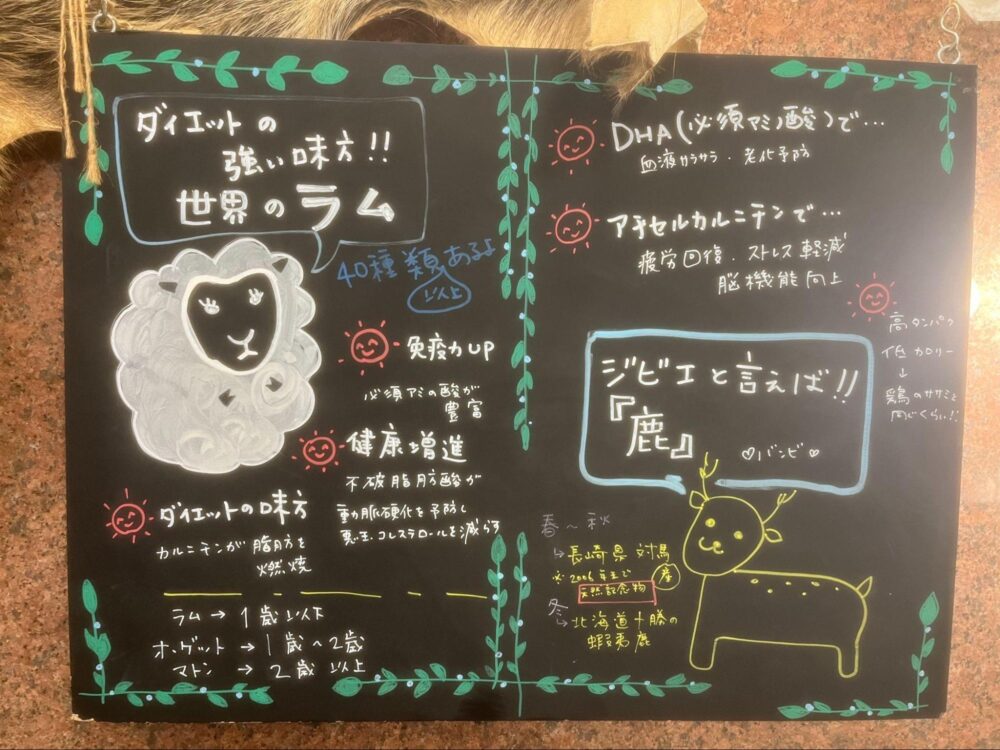 ダイエットの
強い味方!!
世界のラム
40種類あるよ
以上
免疫力UP
必須アミの酸が
豊富
健康増進
不破脂肪酸が
動脈硬化を予防し
悪玉コレステロールを減らす
ダイエットの味方
カルニチンが脂肪を
燃焼
ラム→1歳以下
ホゲット→1歳〜2歳
マトン→2歳以上
DHA(必須アミノ酸)で…
血液サラサラ・老化予防
アチセルカルニチンで…
疲労回復・ストレス軽減
脳機能向上
高タンパク
低カロリー
↓
鶏のササミと
同じくらい!!
ジビエと言えば!!
『鹿』
♡バンビ♡
春〜秋
↳長崎県対馬
産
※2006年まで
天然記念物
冬
↳北海道十勝の
蝦夷鹿